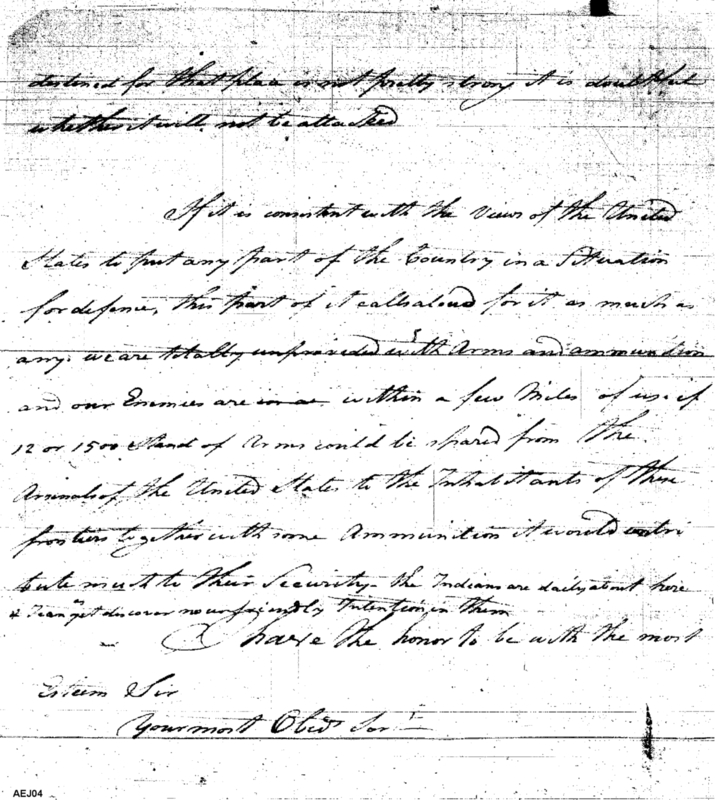 destined for that place is not pretty strong it is doubtful
whether it will not be attacked
If it is consistent with the views of the United
States to put any part of the Country in a Situation
for defence, this part of it calls aloud for it as much as
any. we are totally unprovided with Arms and ammunition
and our Enemies are within a few Miles of us. if
12 or 1500 Stand of Arms could be spared from the
Arsenals of the United States to the Inhabitants of these
frontiers together with some Ammunition it would contri
bute much to their Security - the Indians are daily about here
& I can yet discover no unfriendly Intention in them
I have the honor to be with the most
Esteem & Sir
Your most Obedt Sert
AEJ04